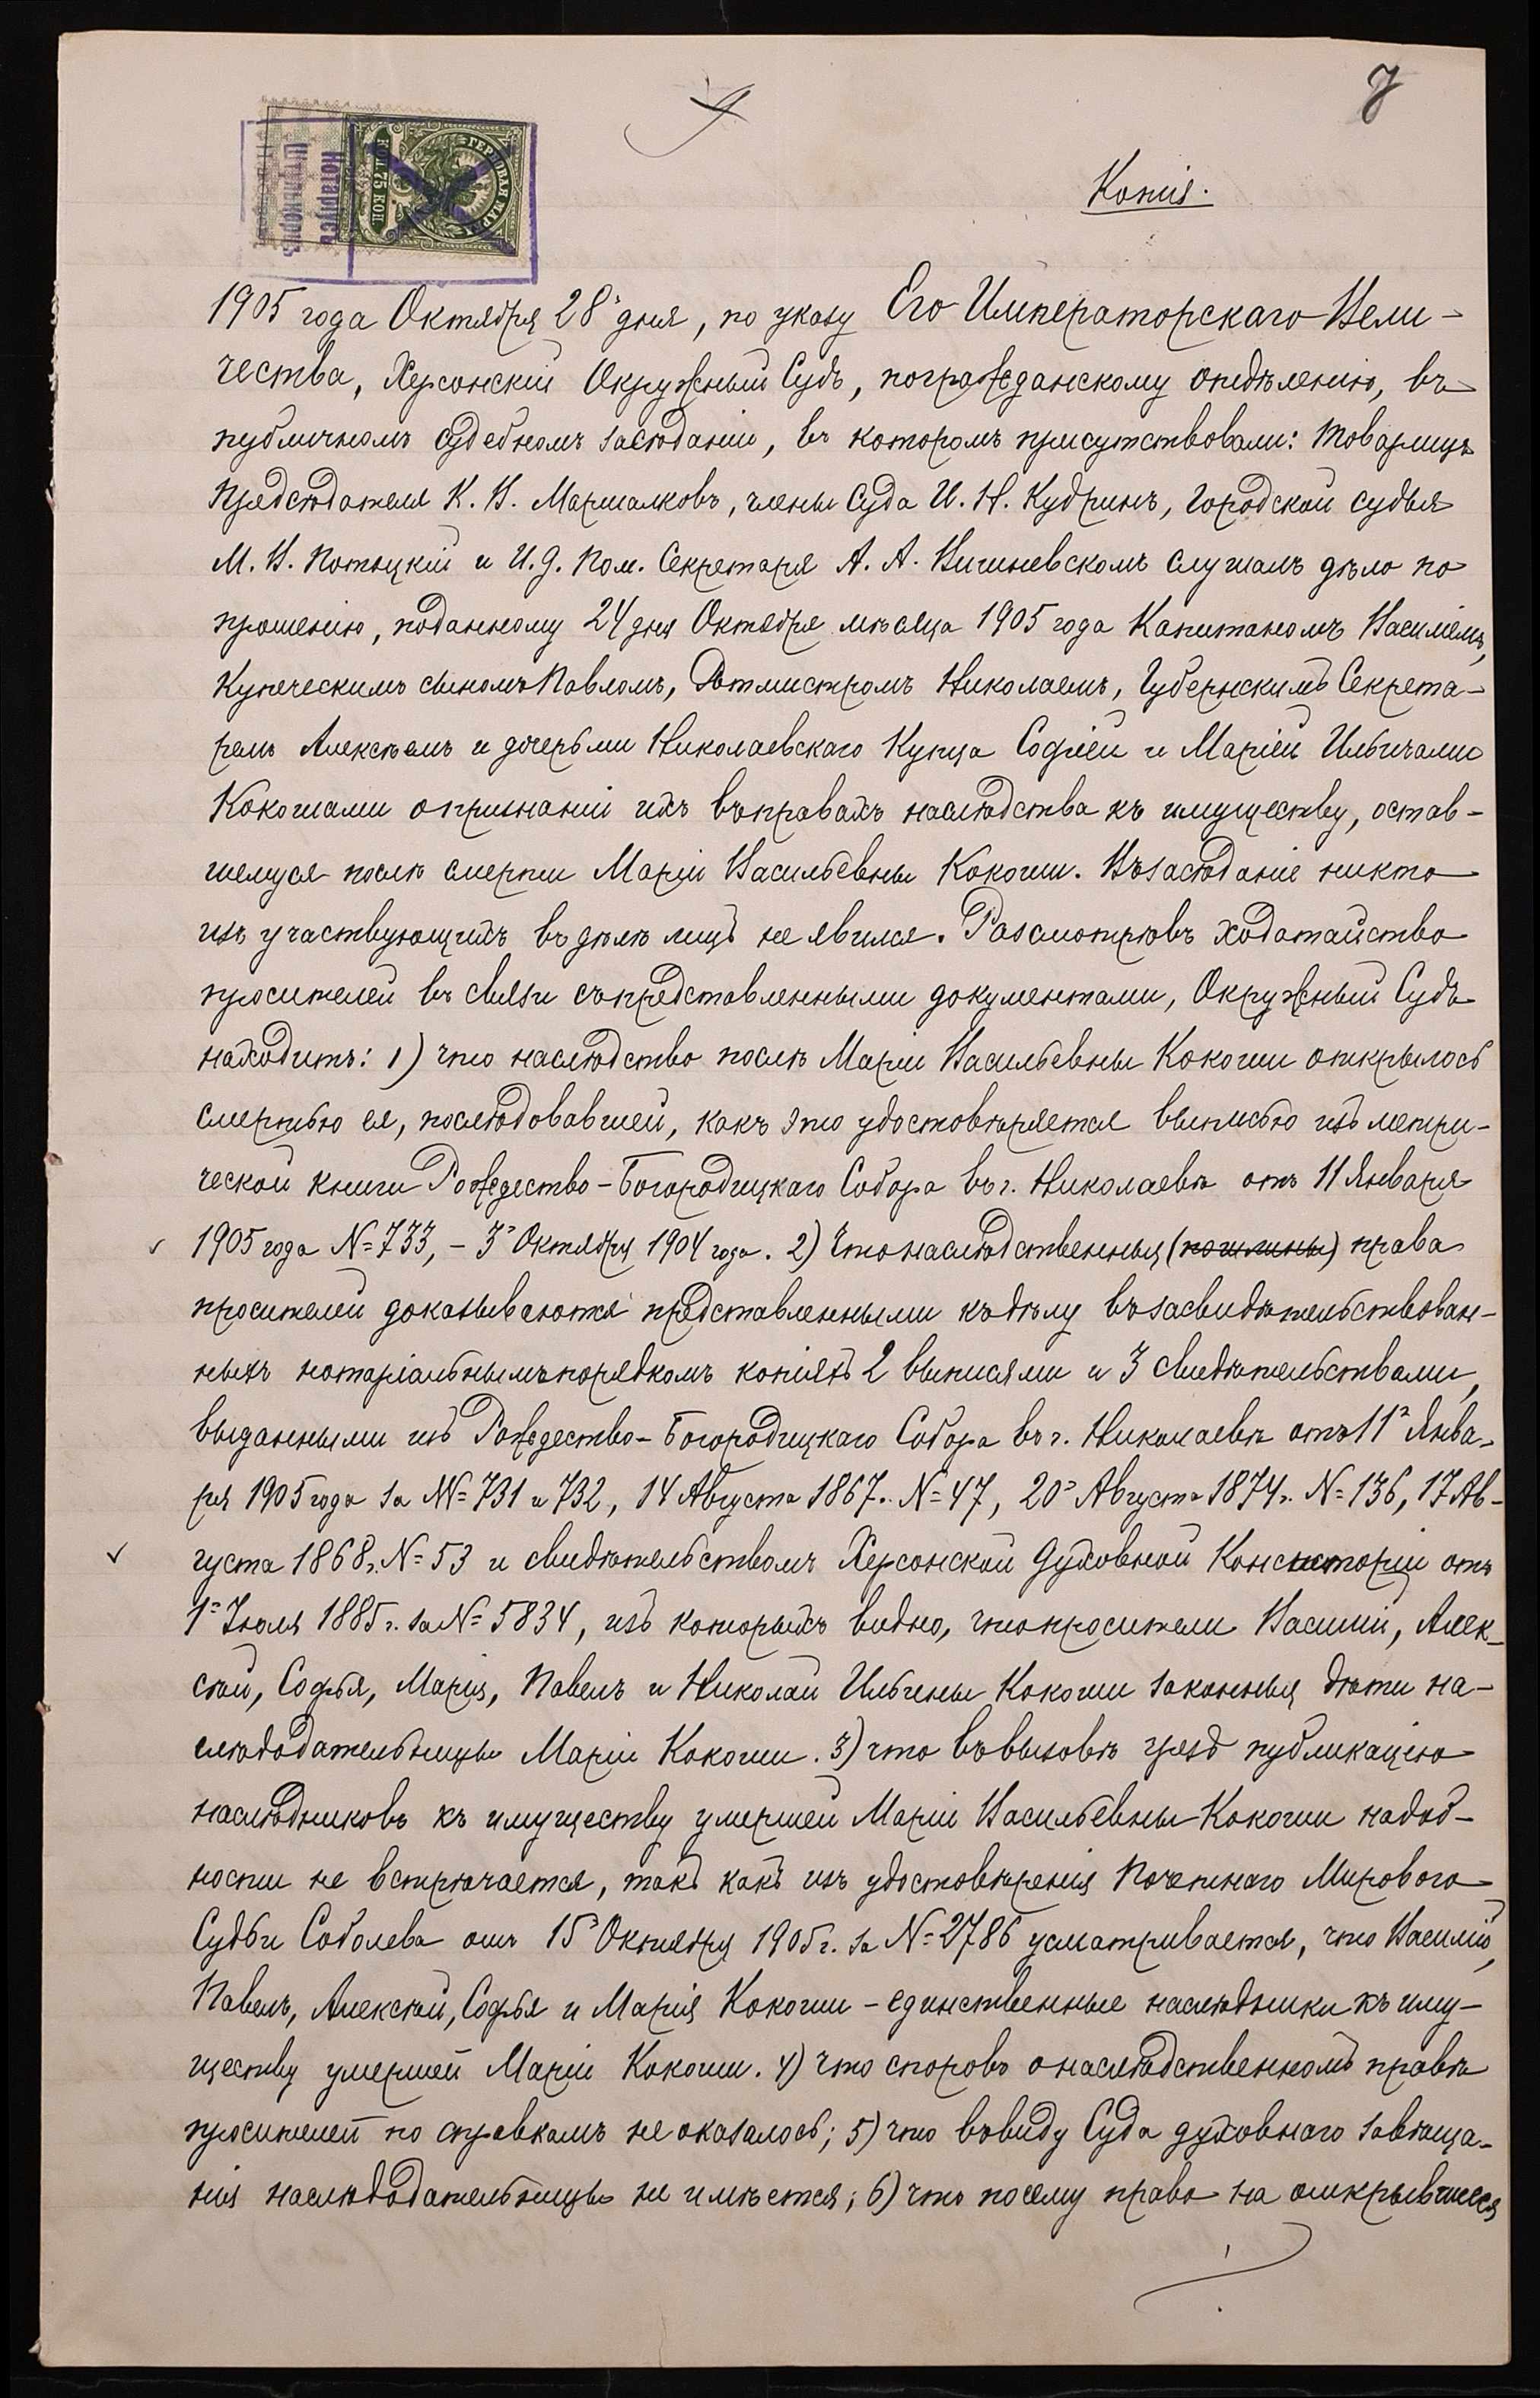 7
Копія.
ГЕРБОВАЯ МАРКА
КОП. 75 КОП.
Нотаріусъ
1905 года Октября 28 дня, по указу Его Императорскаго Вели-
чества, Херсонскій Окружный Судъ, по гражданскому отдѣленію, въ
публичномъ судебномъ засѣданіи, въ которомъ присутствовали: Товарищъ
Предсѣдателя К. В. Маршалковъ, члены Суда И. Н. Кудринъ, Городской судья
М. В. Потоцкій и И. д. Пом. Секретаря А. А. Вишневскомъ слушалъ дѣло по
прошенію, поданному 24 дня Октября мѣсяца 1905 года Капитаномъ Василіемъ,
Купеческимъ сыномъ Павломъ, Ротмистромъ Николаемъ, Губернскимъ Секрета-
ремъ Алексѣемъ и дочерьми Николаевскаго Купца Софіей и Маріей Ильичами
Кокошами о признаніи ихъ въ правахъ наслѣдства къ имуществу, остав-
шемуся послѣ смерти Маріи Васильевны Кокоши. Въ засѣданіе никто
изъ участвующихъ въ дѣлѣ лицъ не явился. Разсмотрѣвъ ходатайство
просителей въ связи съ представленными документами, Окружный Судъ
находитъ: 1) что наслѣдство послѣ Маріи Васильевны Кокоши открылось
смертью ея, послѣдовавшей, какъ это удостовѣряется выписью изъ метри-
ческой книги Рождество-Богородицкаго Собора въ г. Николаевѣ отъ 11 Января
1905 года № 733, - 3 Октября 1904 года. 2) Что наслѣдственныя (пошлины) права
просителей доказываются представленными къ дѣлу въ засвидѣтельствован-
ныхъ нотаріальнымъ порядкомъ копіяхъ 2 выписями и 3 свидѣтельствами,
выданными изъ Рождество-Богородицкаго Собора въ г. Николаевѣ отъ 11 Янва-
ря 1905 года за №№ 731 и 732, 14 Августа 1867 г. № 47, 20 Августа 1874 г. № 136, 17 Ав-
густа 1868 г. № 53 и свидѣтельствомъ Херсонской Духовной Консисторіи отъ
1 Іюля 1885 г. за № 5834, изъ которыхъ видно, что просители Василій, Алек-
сѣй, Софья, Марія, Павелъ и Николай Ильичи Кокоши законныя дѣти на-
слѣдодательницы Маріи Кокоши. 3) что въ вызовѣ чрезъ публикацію
наслѣдниковъ къ имуществу умершей Маріи Васильевны Кокоши надоб-
ности не встрѣчается, такъ какъ изъ удостовѣренія Почетнаго Мирового
Судьи Соболева отъ 15 Октября 1905 г. за № 2786 усматривается, что Василій,
Павелъ, Алексѣй, Софья и Марія Кокоши - единственные наслѣдники къ иму-
ществу умершей Маріи Кокоши. 4) что споровъ о наслѣдственномъ правѣ
просителей по справкамъ не оказалось; 5) что въ виду Суда духовнаго завѣща-
нія наслѣдодательницы не имѣется; 6) что посему право на открывшееся